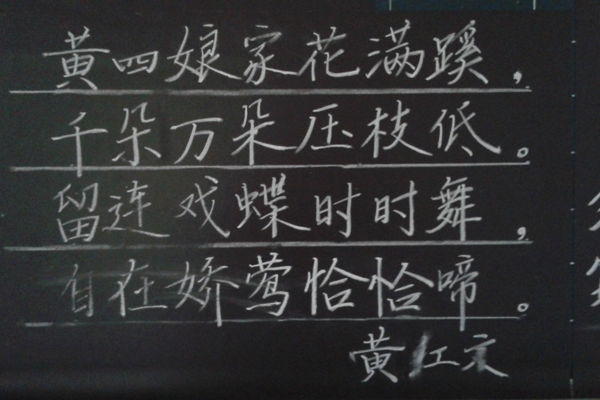 黄四娘家花满蹊，
千朵万朵压枝低。
留连戏蝶时时舞，
自在娇莺恰恰啼。
黄红文